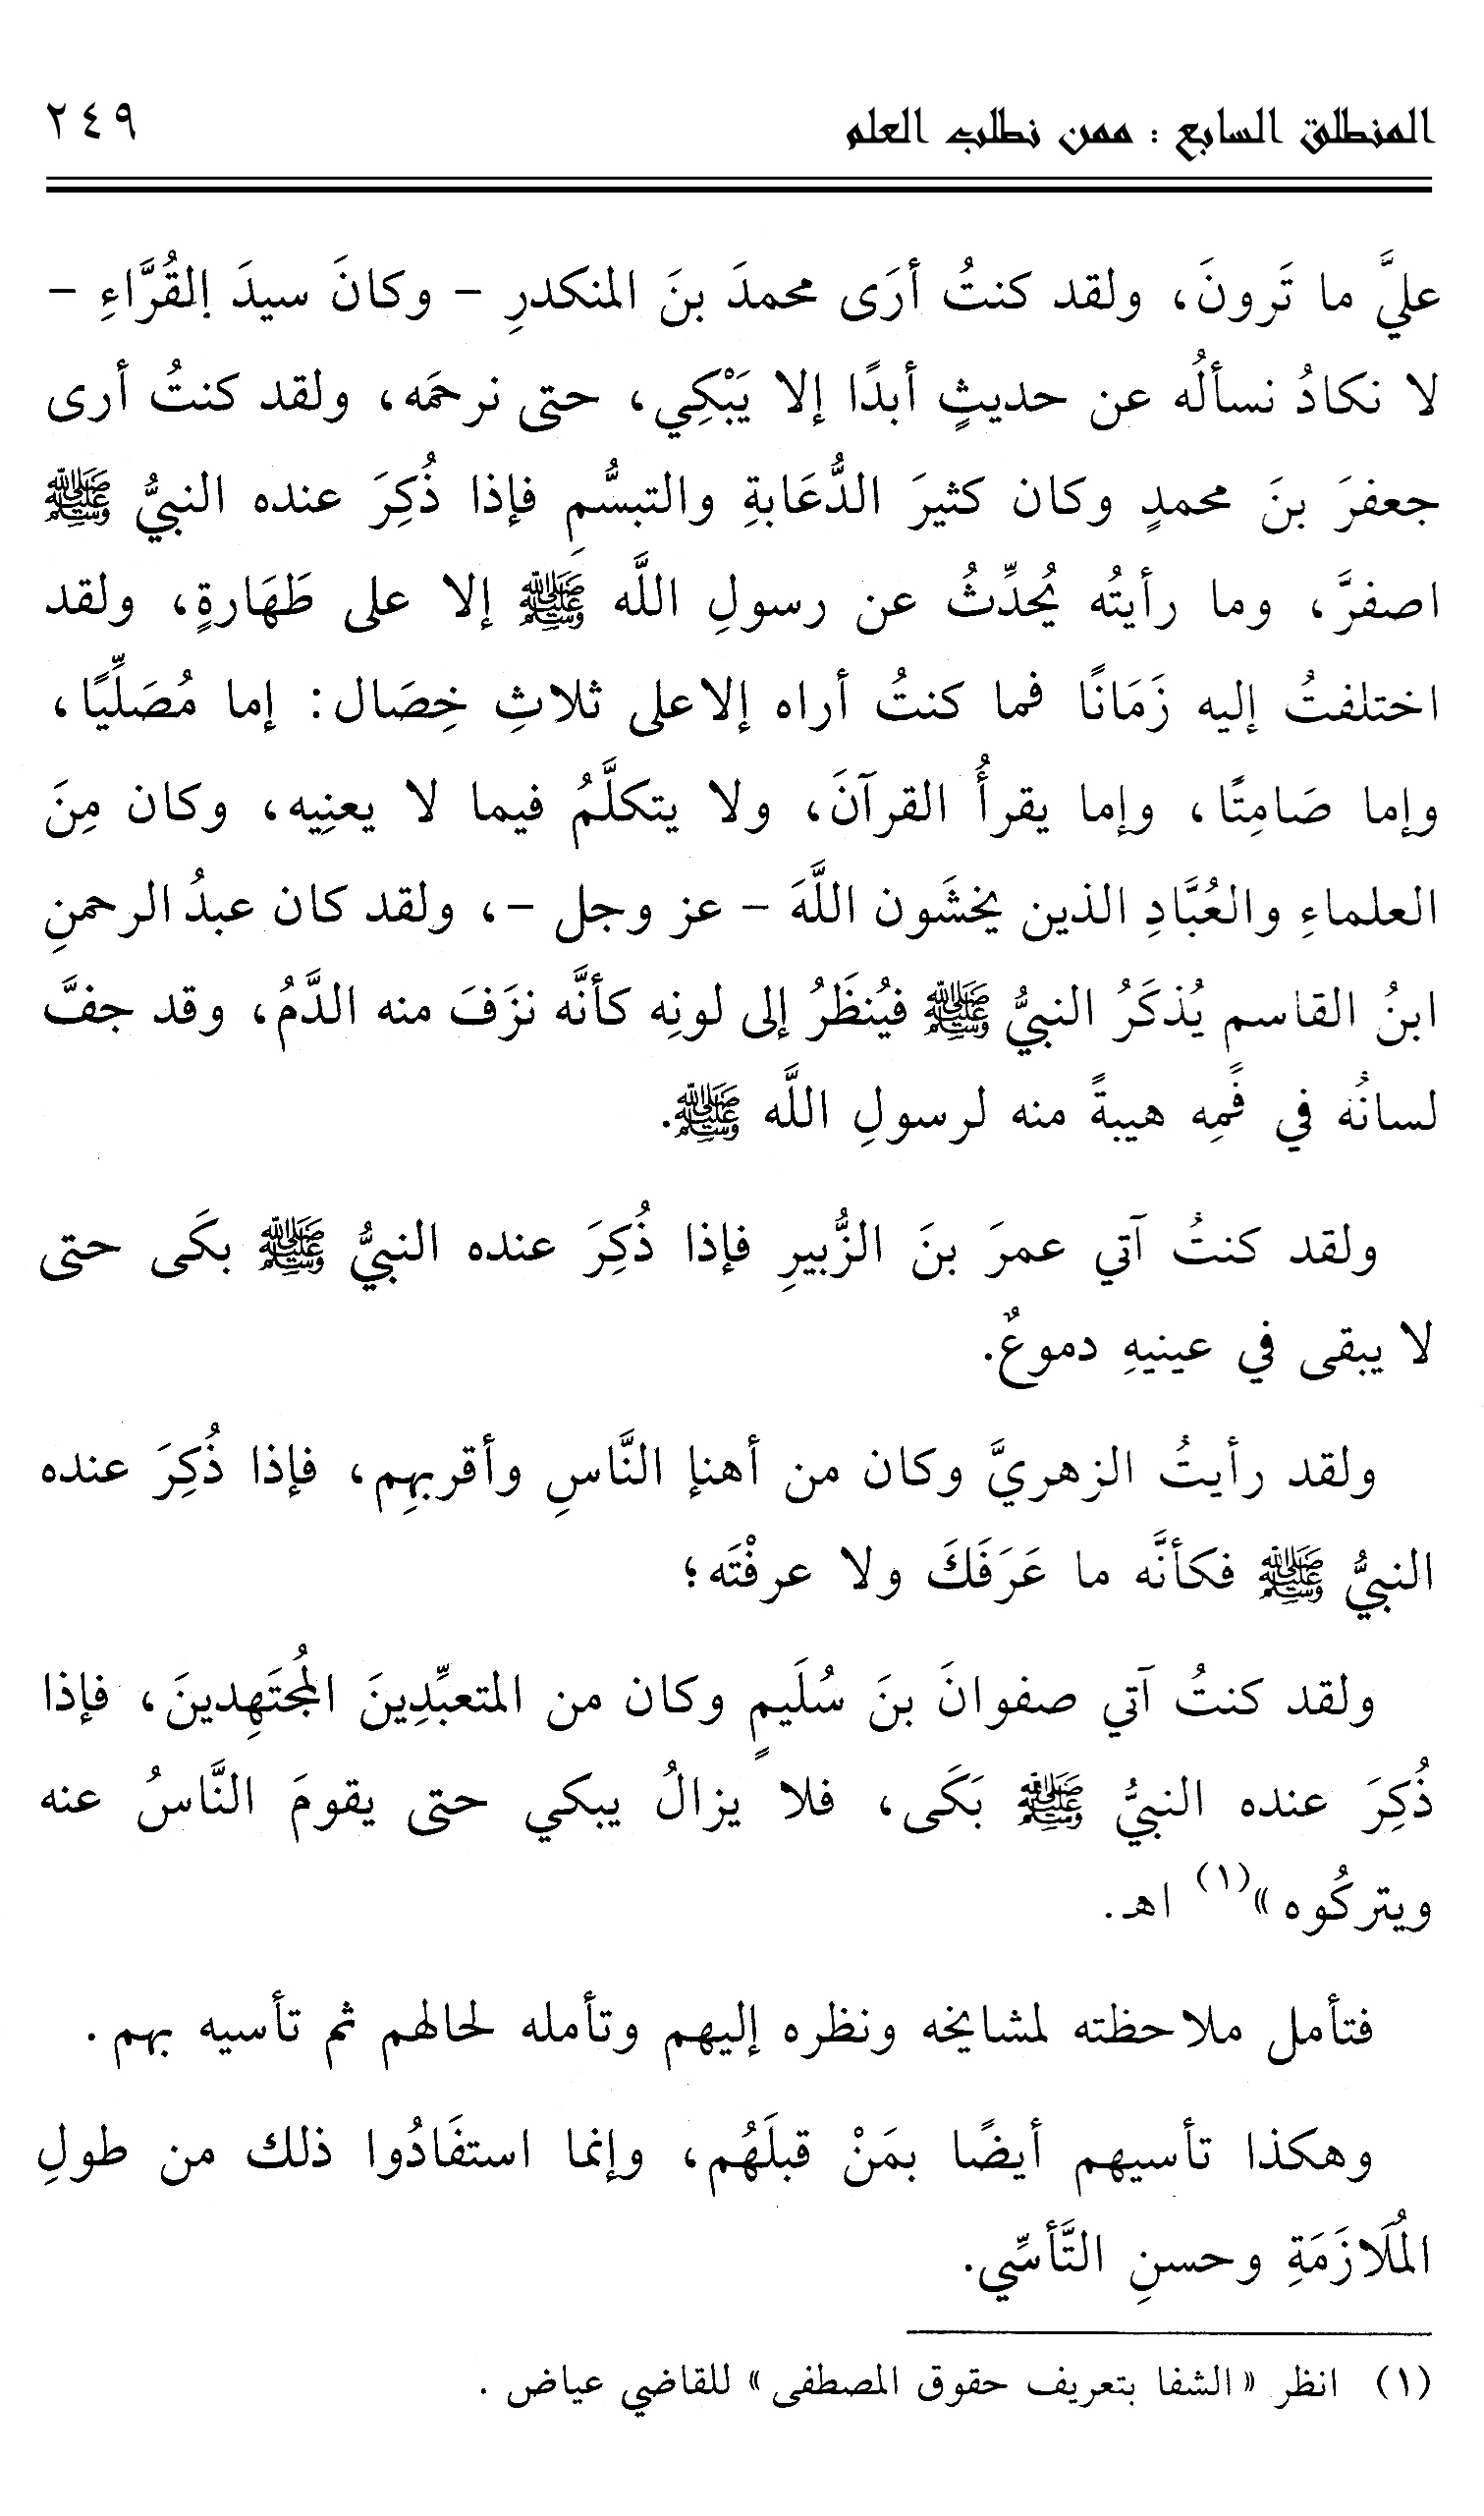 المنطلق السابع : ممن نطلب العلم ٢٤٩
عليَّ ما تَرونَ، ولقد كنتُ أرَى محمدَ بنَ المنكدرِ - وكانَ سيدَ القُرَّاءِ -
لا نكادُ نسألُه عن حديثٍ أبدًا إلا يَبْكِي، حتى نرحمَه، ولقد كنتُ أرى
جعفرَ بنَ محمدٍ وكان كثيرَ الدُّعَابةِ والتبسُّمِ فإذا ذُكِرَ عنده النبيُّ ﷺ
اصفرَّ، وما رأيتُه يُحدِّثُ عن رسولِ اللَّه ﷺ إلا على طَهَارةٍ، ولقد
اختلفتُ إليه زَمَانًا فما كنتُ أراه إلاعلى ثلاثِ خِصَال: إما مُصَلِّيًا،
وإما صَامِتًا، وإما يقرأُ القرآنَ، ولا يتكلَّمُ فيما لا يعنِيه، وكان مِنَ
العلماءِ والعُبَّادِ الذين يخشَون اللَّهَ - عز وجل -، ولقد كان عبدُ الرحمنِ
ابنُ القاسم يُذكَرُ النبيُّ ﷺ فيُنظَرُ إلى لونِه كأنَّه نزَفَ منه الدَّمُ، وقد جفَّ
لسانُه في فَمِه هيبةً منه لرسولِ اللَّه ﷺ.
ولقد كنتُ آتي عمرَ بنَ الزُّبيرِ فإذا ذُكِرَ عنده النبيُّ ﷺ بكَى حتى
لا يبقى في عينيهِ دموعٌ.
ولقد رأيتُ الزهريَّ وكان من أهنإ النَّاسِ وأقربهِم، فإذا ذُكِرَ عنده
النبيُّ ﷺ فكأنَّه ما عَرَفَكَ ولا عرفْتَه؛
ولقد كنتُ آتي صفوانَ بنَ سُلَيمٍ وكان من المتعبِّدِينَ المُجتَهِدينَ، فإذا
ذُكِرَ عنده النبيُّ ﷺ بَكَى، فلا يزالُ يبكي حتى يقومَ النَّاسُ عنه
ويتركُوه»(١) اهـ.
فتأمل ملاحظته لمشايخه ونظره إليهم وتأمله لحالهم ثم تأسيه بهم.
وهكذا تأسيهم أيضًا بمَنْ قبلَهُم، وإنما استفَادُوا ذلك من طولِ
المُلَازَمَةِ وحسنِ التَّأسِّي.
(١) انظر «الشفا بتعريف حقوق المصطفى» للقاضي عياض .